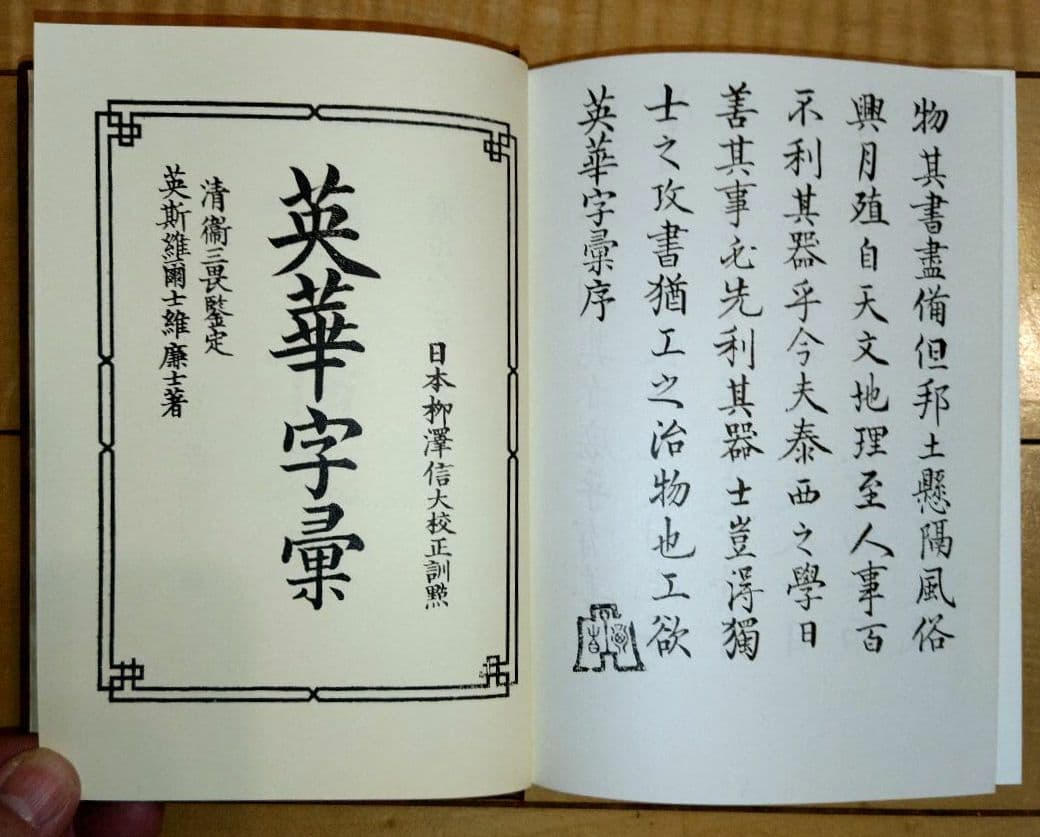 英斯維爾士維廉士著
清衞三畏鑒定
英華字彙
日本柳澤信大校正訓點
英華字彙序
士之攻書猶工之治物也工欲
善其事必先利其器士豈得獨
不利其器乎今夫泰西之學日
興月殖自天文地理至人事百
物其書盡備但邦土懸隔風俗